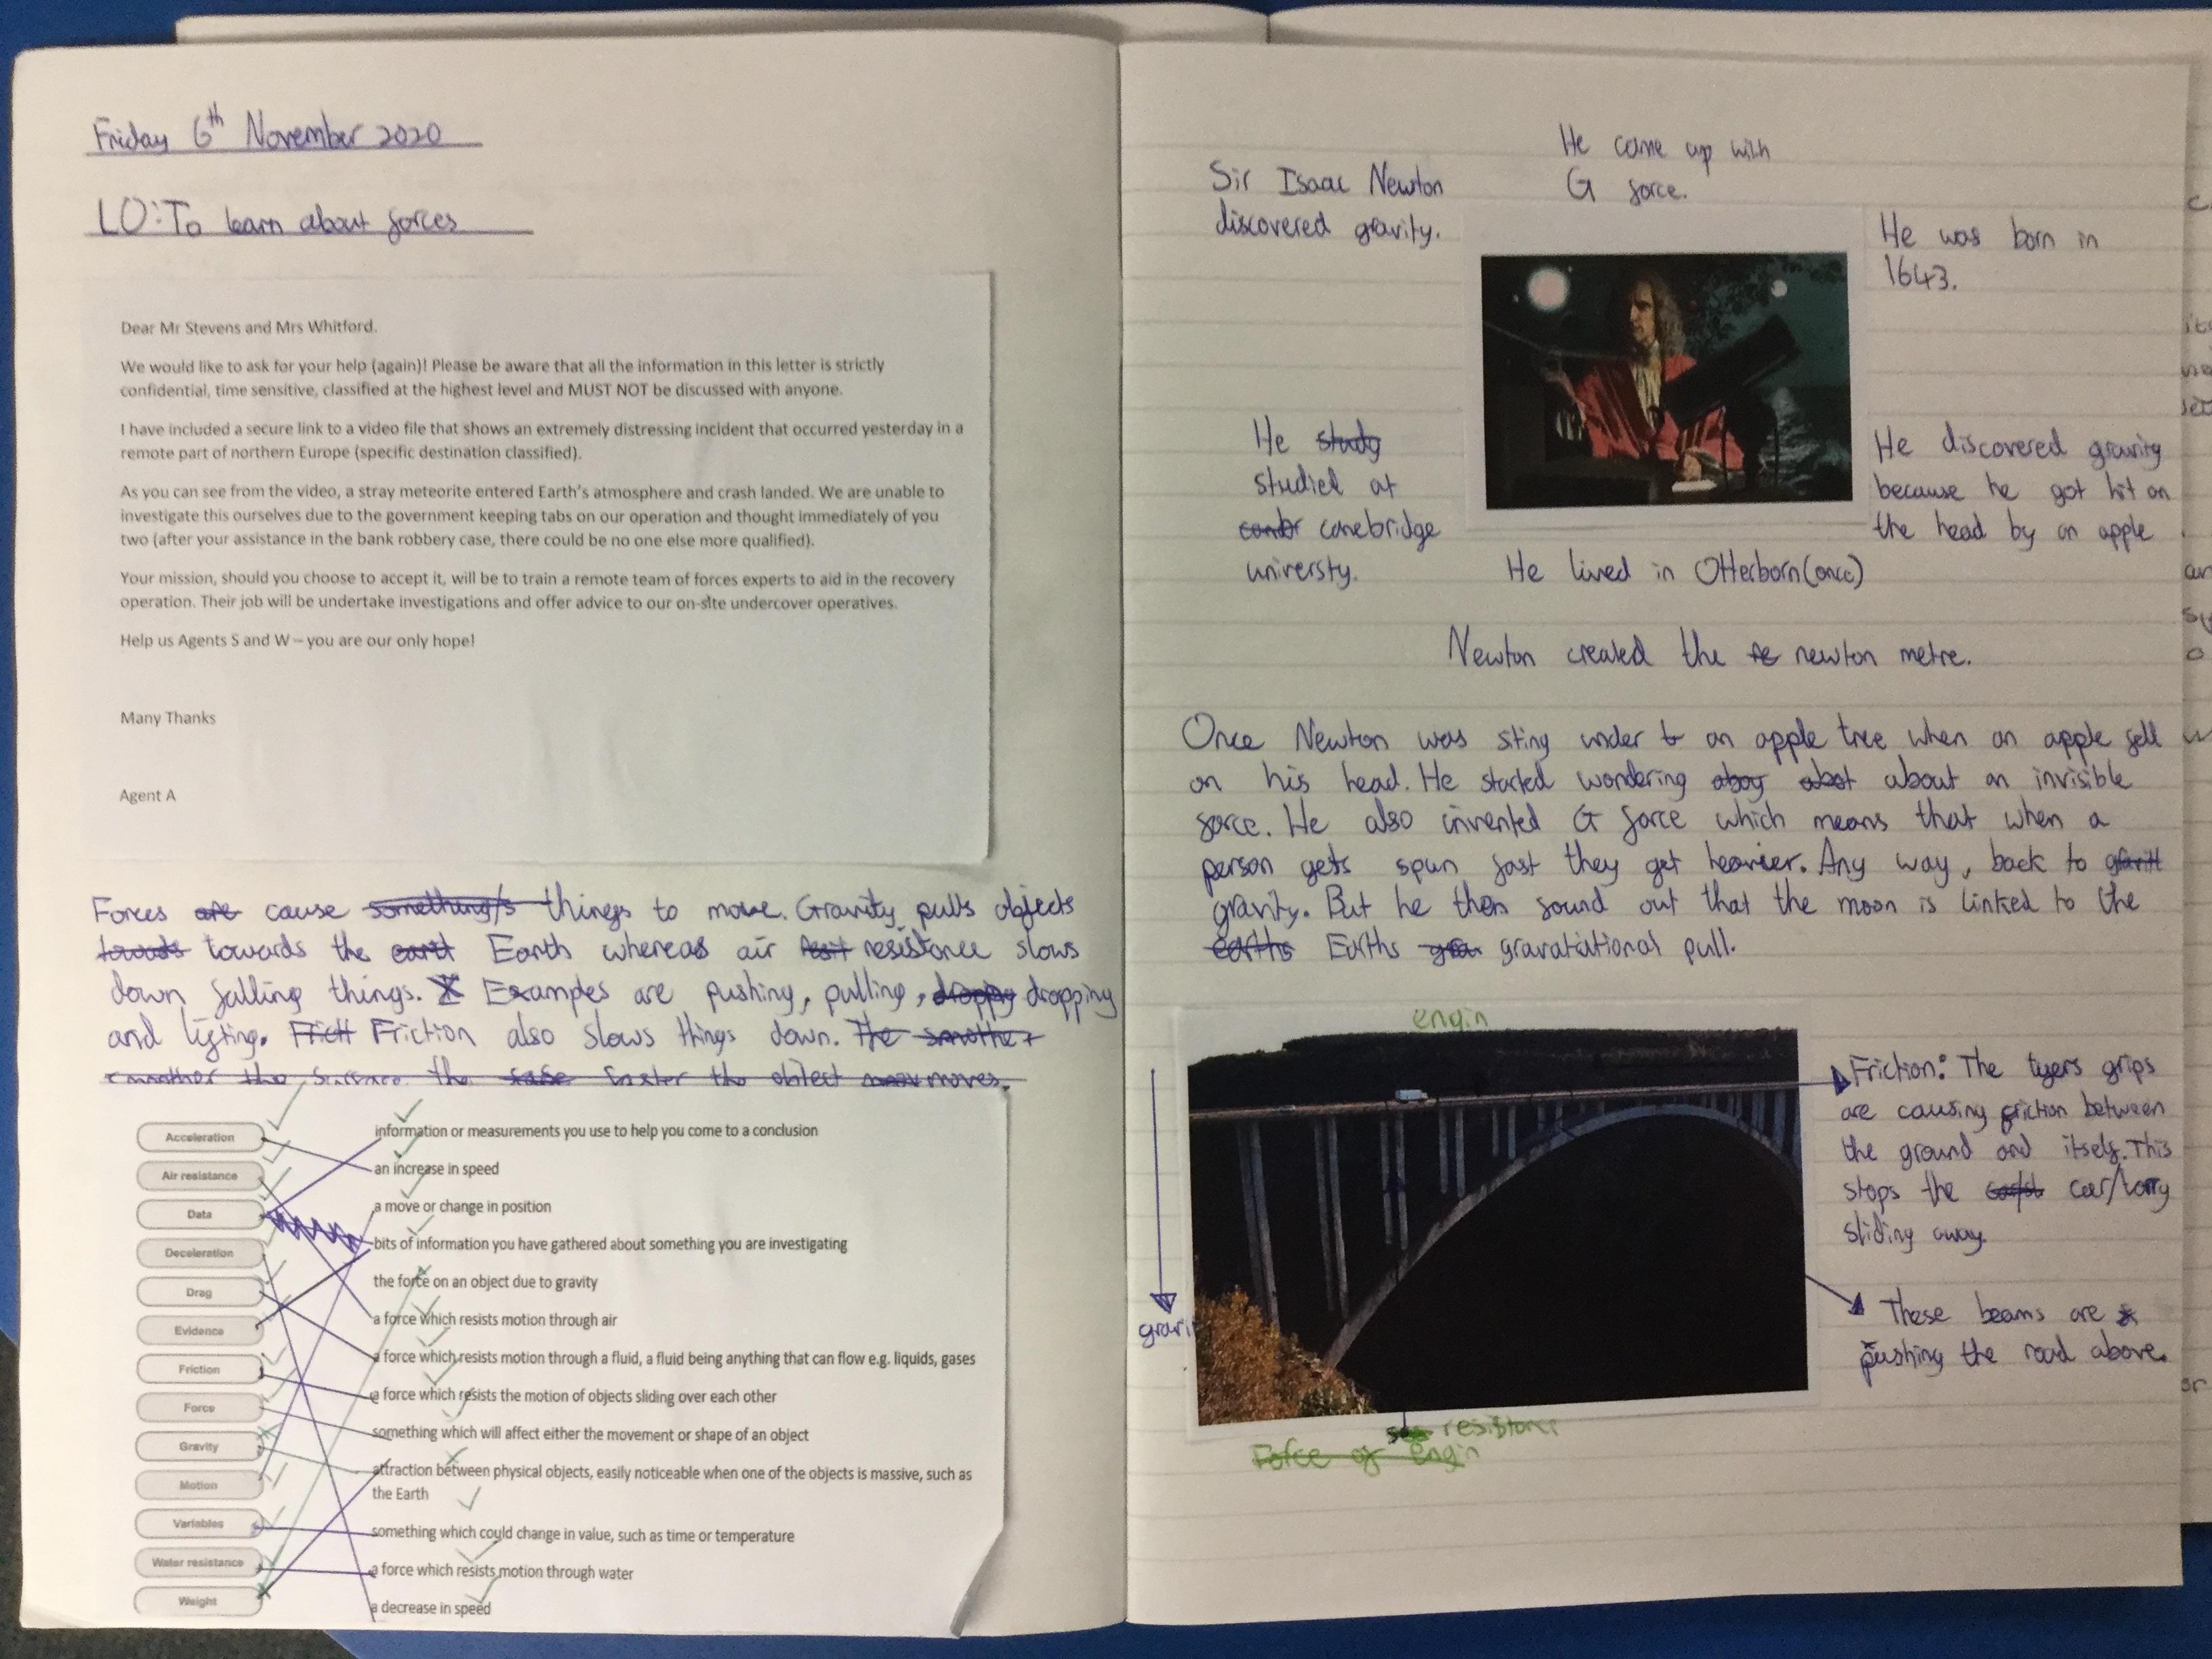 Friday 6th November 2020
LO: To learn about forces
Dear Mr Stevens and Mrs Whitford.
We would like to ask for your help (again)! Please be aware that all the information in this letter is strictly
confidential, time sensitive, classified at the highest level and MUST NOT be discussed with anyone.
I have included a secure link to a video file that shows an extremely distressing incident that occurred yesterday in a
remote part of northern Europe (specific destination classified).
As you can see from the video, a stray meteorite entered Earth's atmosphere and crash landed. We are unable to
investigate this ourselves due to the government keeping tabs on our operation and thought immediately of you
two (after your assistance in the bank robbery case, there could be no one else more qualified).
Your mission, should you choose to accept it, will be to train a remote team of forces experts to aid in the recovery
operation. Their job will be undertake investigations and offer advice to our on-site undercover operatives.
Help us Agents S and W – you are our only hope!
Many Thanks
Agent A
Forces are cause something/s things to move. Gravity pulls objects
towads towards the eart Earth whereas air resit resistance slows
down falling things. Examples are pushing, pulling, droppig dropping
and lifting. Frict Friction also slows things down. The smother
smoother the surface the faster the object moves.
Acceleration
Air resistance
Data
Deceleration
Drag
Evidence
Friction
Force
Gravity
Motion
Variables
Water resistance
Weight
information or measurements you use to help you come to a conclusion
an increase in speed
a move or change in position
bits of information you have gathered about something you are investigating
the force on an object due to gravity
a force which resists motion through air
a force which resists motion through a fluid, a fluid being anything that can flow e.g. liquids, gases
a force which resists the motion of objects sliding over each other
something which will affect either the movement or shape of an object
attraction between physical objects, easily noticeable when one of the objects is massive, such as
the Earth
something which could change in value, such as time or temperature
a force which resists motion through water
a decrease in speed
Sir Isaac Newton
discovered gravity.
He came up with
G force.
He was born in
1643.
He study
studied at
cambr canebridge
universty.
He discovered gravity
because he got hit on
the head by an apple
He lived in Otterborn(once)
Newton created the newton metre.
Once Newton was siting under an apple tree when an apple fell
on his head. He started wondering aboy abot about an invisible
force. He also invented G force which means that when a
person gets spun fast they get heavier. Any way, back to
gravity. But he then found out that the moon is linked to the
earths Earths gra gravatational pull.
engin
gravi
Friction: The tyers grips
are causing friction between
the ground and itself. This
stops the car/lorry
sliding away.
These beams are
pushing the road above.
resistanc
Force of engin